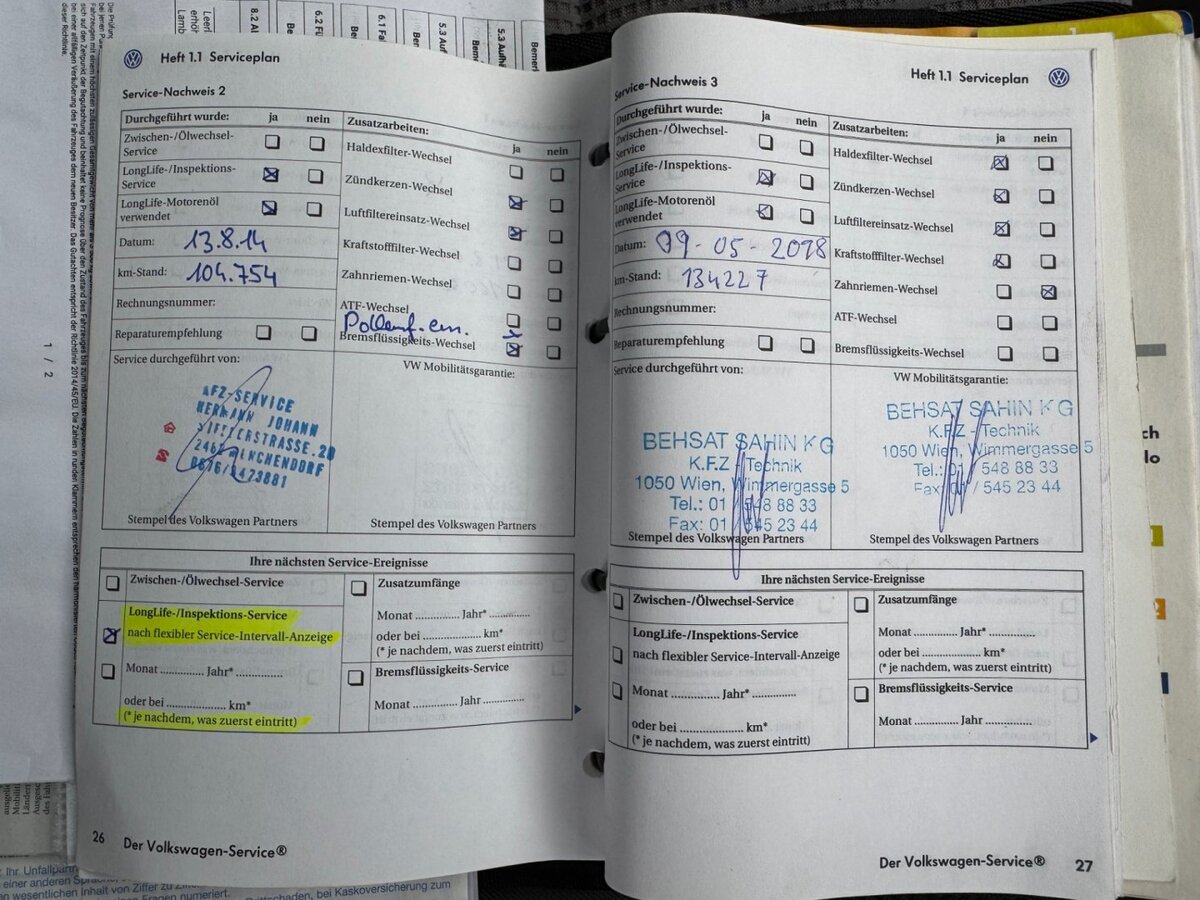 Heft 1.1 Serviceplan
Service-Nachweis 2
Durchgeführt wurde: ja nein
Zwischen-/Ölwechsel-
Service
LongLife-/Inspektions-
Service
LongLife-Motorenöl
verwendet
Datum: 13.8.14
km-Stand: 104.754
Rechnungsnummer:
Reparaturempfehlung
Zusatzarbeiten:
ja nein
Haldexfilter-Wechsel
Zündkerzen-Wechsel
Luftfiltereinsatz-Wechsel
Kraftstofffilter-Wechsel
Zahnriemen-Wechsel
ATF-Wechsel
Bremsflüssigkeits-Wechsel
Service durchgeführt von:
KFZ-SERVICE
HERMANN JOHANN
Stempel des Volkswagen Partners
VW Mobilitätsgarantie:
Stempel des Volkswagen Partners
Ihre nächsten Service-Ereignisse
Zwischen-/Ölwechsel-Service
LongLife-/Inspektions-Service
nach flexibler Service-Intervall-Anzeige
Monat .............. Jahr* ...............
oder bei .................... km*
(* je nachdem, was zuerst eintritt)
Zusatzumfänge
Monat .............. Jahr* .............
oder bei .................... km*
(* je nachdem, was zuerst eintritt)
Bremsflüssigkeits-Service
Monat ............ Jahr .............
26 Der Volkswagen-Service®
Heft 1.1 Serviceplan
Service-Nachweis 3
Durchgeführt wurde: ja nein
Zwischen-/Ölwechsel-
Service
LongLife-/Inspektions-
Service
LongLife-Motorenöl
verwendet
Datum: 09-05-2018
km-Stand: 134227
Rechnungsnummer:
Reparaturempfehlung
Zusatzarbeiten:
ja nein
Haldexfilter-Wechsel
Zündkerzen-Wechsel
Luftfiltereinsatz-Wechsel
Kraftstofffilter-Wechsel
Zahnriemen-Wechsel
ATF-Wechsel
Bremsflüssigkeits-Wechsel
Service durchgeführt von:
BEHSAT SAHIN KG
K.F.Z - Technik
1050 Wien, Wimmergasse 5
Tel.: 01 / 548 88 33
Fax: 01 / 545 23 44
Stempel des Volkswagen Partners
VW Mobilitätsgarantie:
BEHSAT SAHIN KG
K.F.Z - Technik
1050 Wien, Wimmergasse 5
Tel.: 01 / 548 88 33
Fax: 01 / 545 23 44
Stempel des Volkswagen Partners
Ihre nächsten Service-Ereignisse
Zwischen-/Ölwechsel-Service
LongLife-/Inspektions-Service
nach flexibler Service-Intervall-Anzeige
Monat .............. Jahr* .............
oder bei .................... km*
(* je nachdem, was zuerst eintritt)
Zusatzumfänge
Monat .............. Jahr* .............
oder bei .................... km*
(* je nachdem, was zuerst eintritt)
Bremsflüssigkeits-Service
Monat ............ Jahr .............
Der Volkswagen-Service® 27
1 / 2